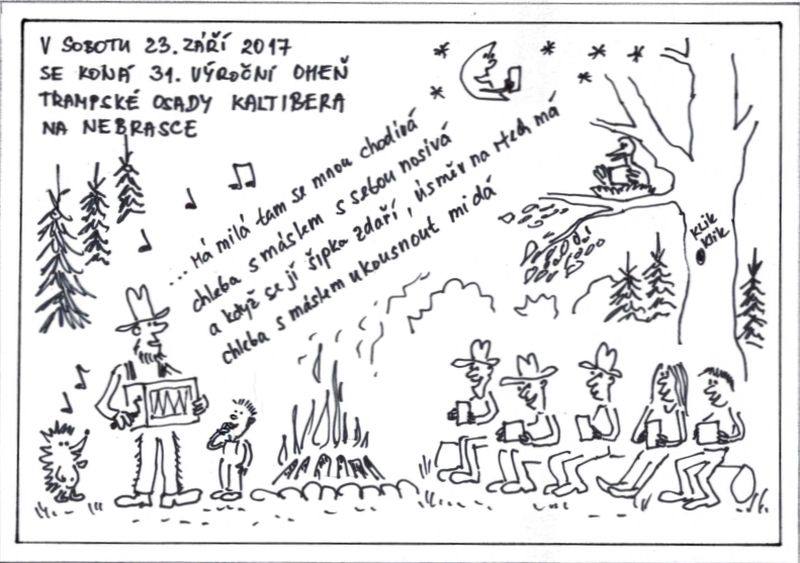 V SOBOTU 23. ZÁŘÍ 2017
SE KONÁ 31. VÝROČNÍ OHEŇ
TRAMPSKÉ OSADY KALTIBERA
NA NEBRASCE
... Má milá tam se mnou chodívá
chleba s máslem s sebou nosívá
a když se jí šipka zdaří, úsměv na rtech má
chleba s máslem ukousnout mi dá
KLIK
KLIK